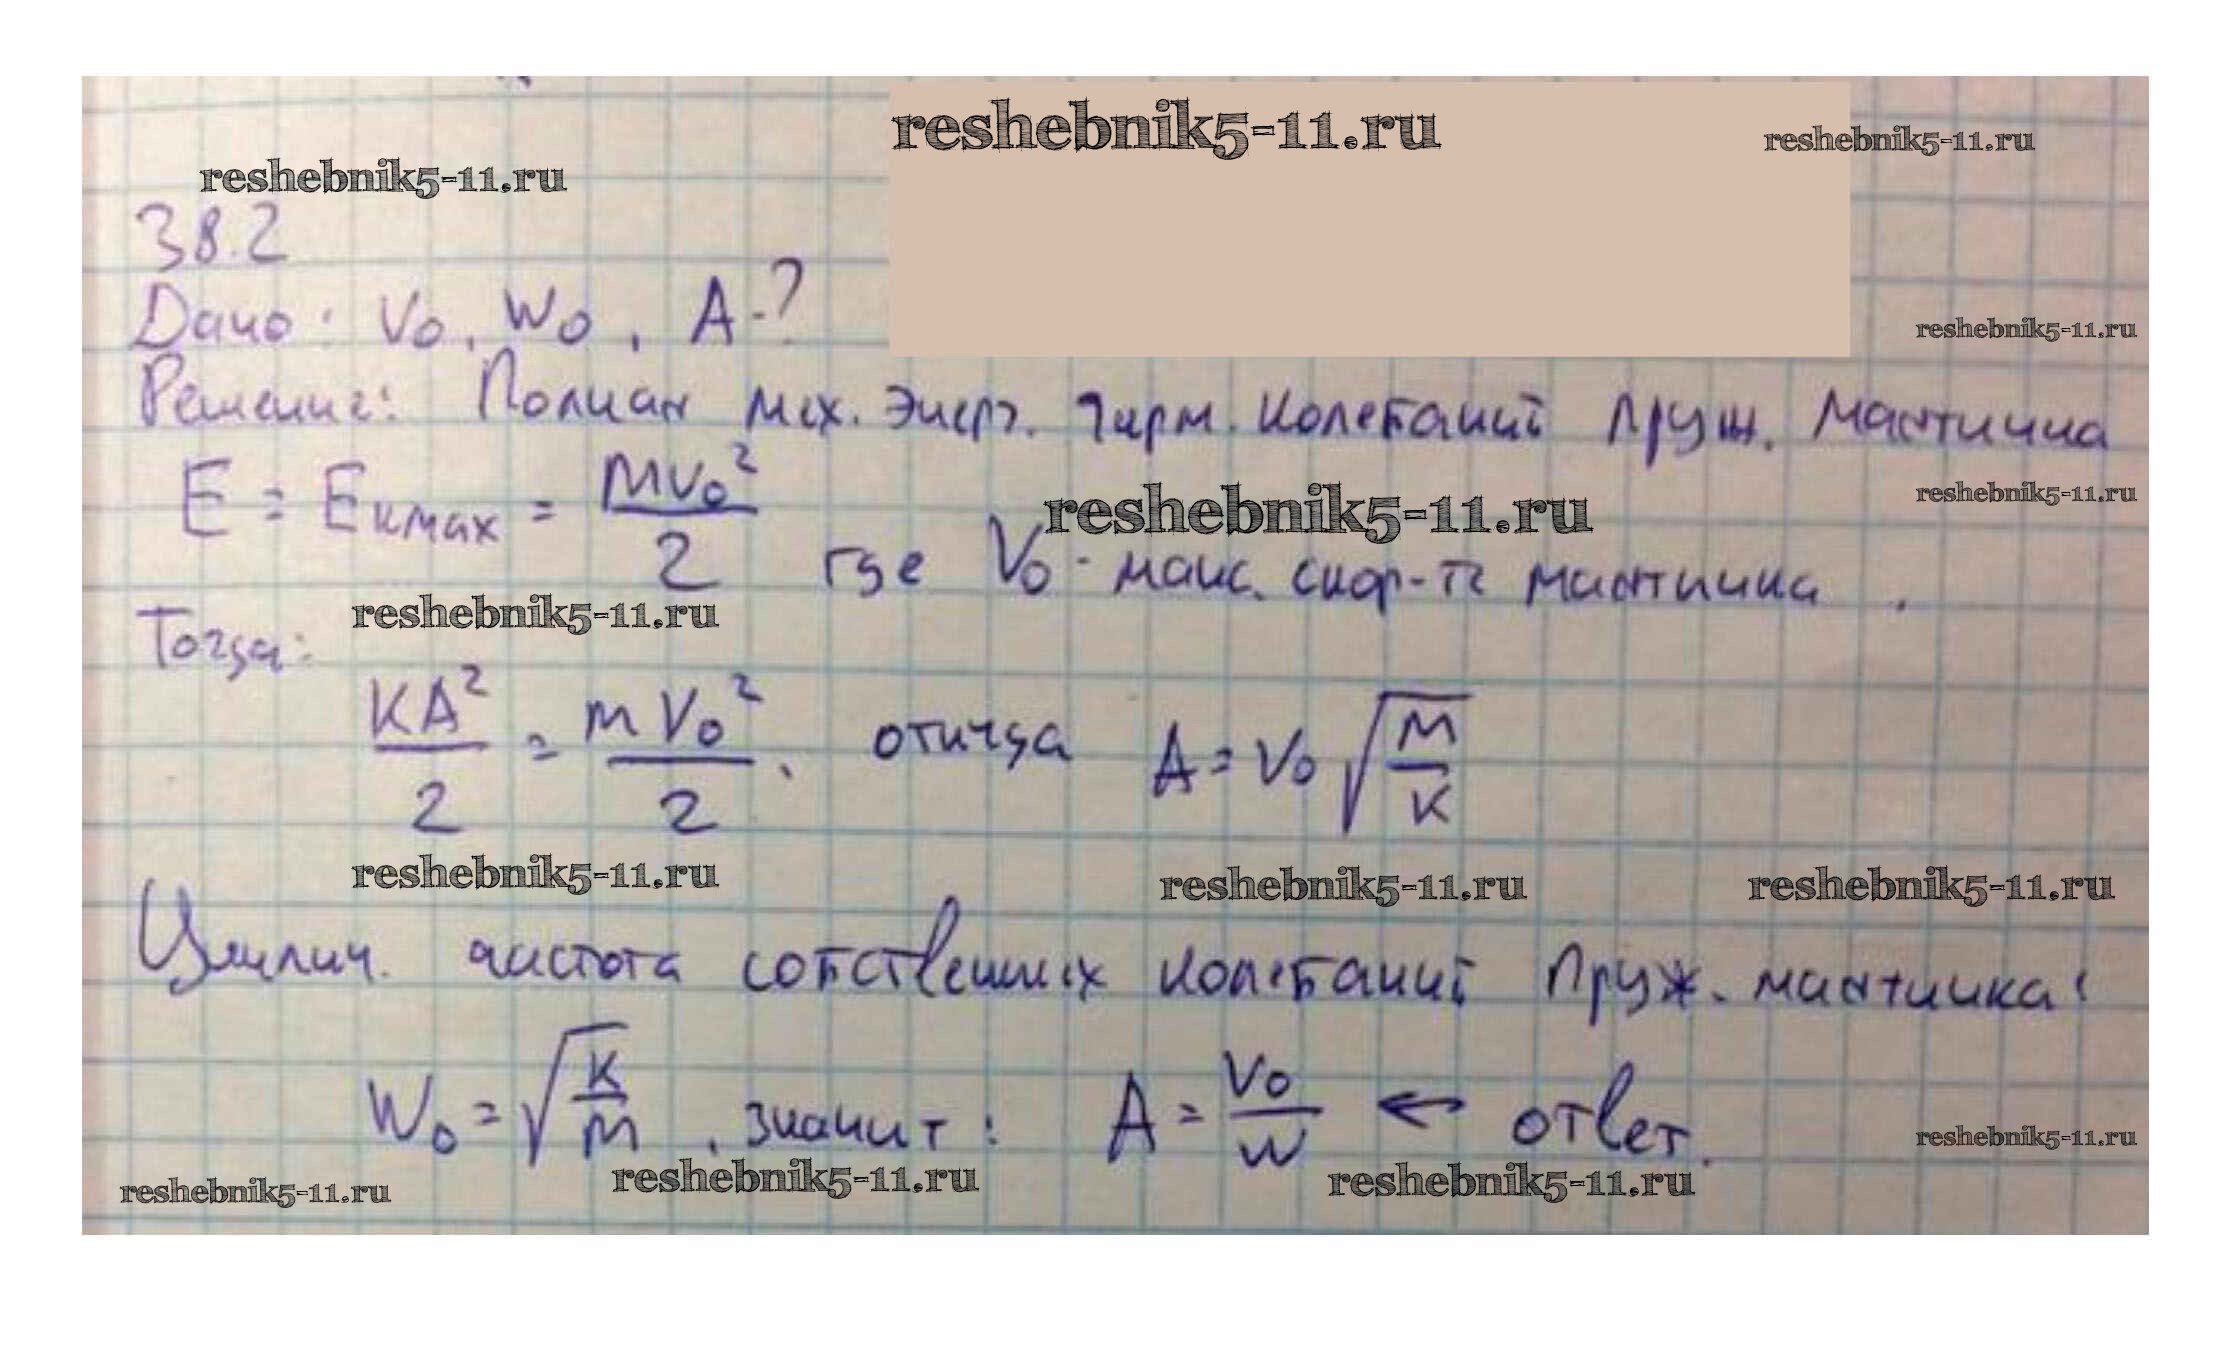 reshebnik5-11.ru
reshebnik5-11.ru
reshebnik5-11.ru
38.2
Дано: V₀, W₀, A-?
reshebnik5-11.ru
Решение: Полная мех. энерг. гарм. колебаний пруж. маятника
E = Eкмах = mv₀²/2 где V₀ - макс. скор-ть маятника.
reshebnik5-11.ru
reshebnik5-11.ru
reshebnik5-11.ru
Тогда:
KA²/2 = mV₀²/2, откуда A = V₀√(m/к)
reshebnik5-11.ru
reshebnik5-11.ru
reshebnik5-11.ru
Циклич. частота собственных колебаний пруж. маятника:
W₀ = √(к/m), значит: A = V₀/W ← ответ.
reshebnik5-11.ru
reshebnik5-11.ru
reshebnik5-11.ru
reshebnik5-11.ru